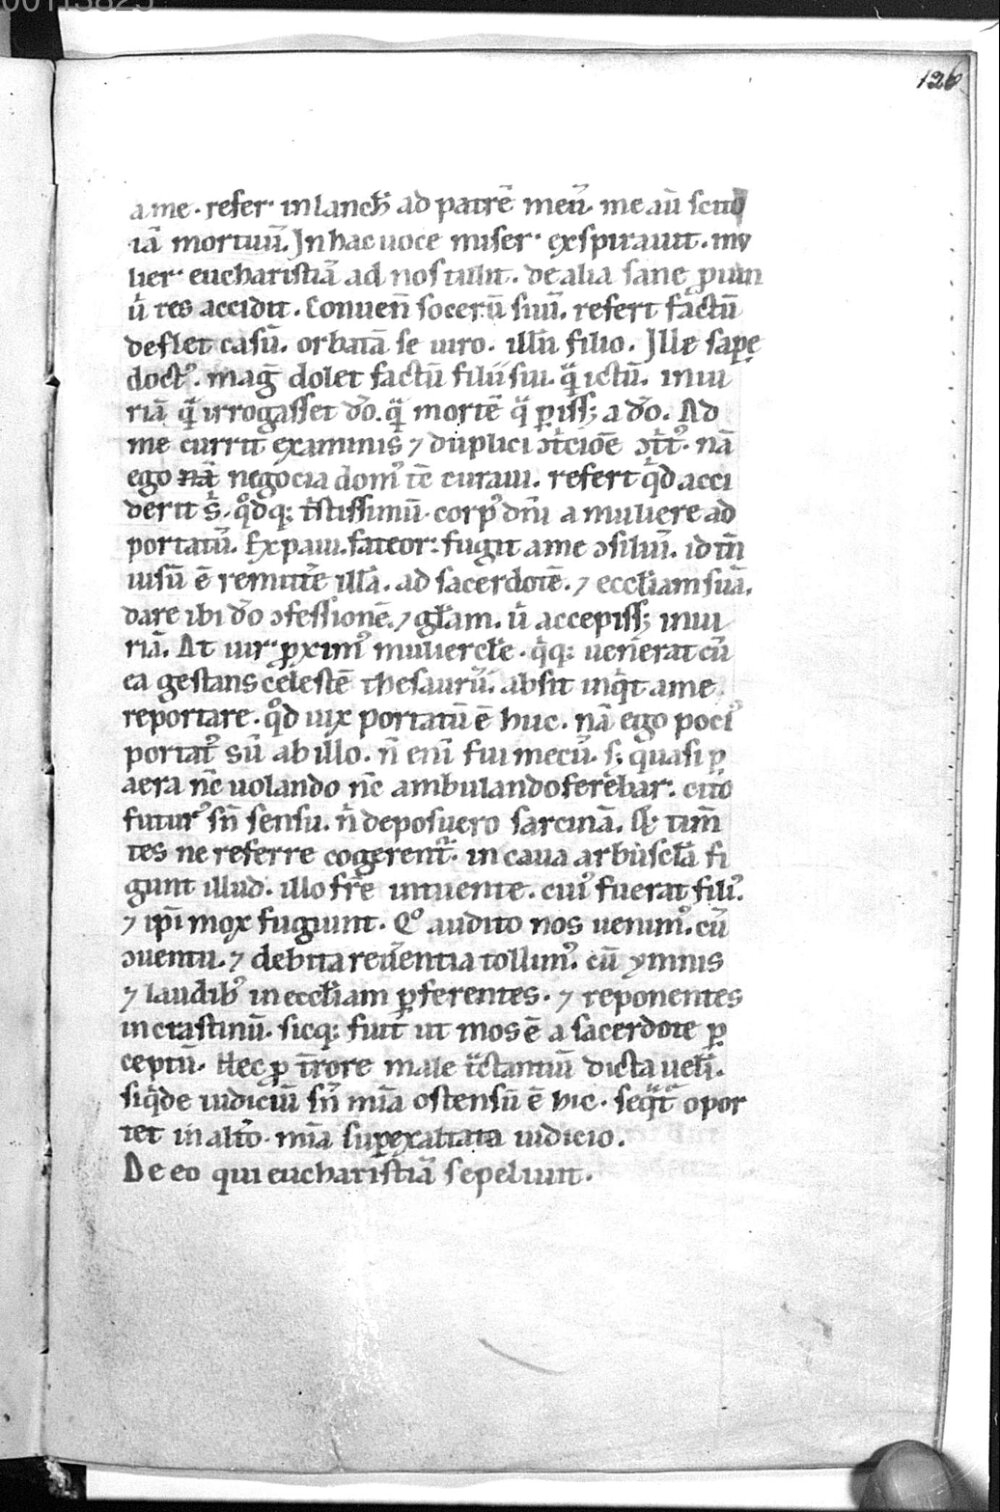 00113825
126
a me. refer in lancħ ad patrē meū. me aū scito
iā mortuū. In hac uoce miser exspirauit. mu
lier eucharistiā ad nos tulit. de alia sane ꝓuin
tia res accidit. Conuen̄ socerū suū. refert factū
deflet casū. orbatā se uiro. illū filio. Ille sapę
doctꝰ. maḡ dolet factū filii sui. q̄ ictū. iniu
riā q̄ irrogasset dō. q̄ mortē q̄ ꝑiss; a dō. Ad
me currit examinis ⁊ duplici ↄtͥcioē ↄtͥtꝰ. nā
ego nā negocia domꝰ tc̄ curaui. refert qͥd acci
derit s̄. qͦdq; tͥstissimū. corpꝰ dn̄i a muliere ad
portatū. Expaui. fateor. fugit a me ↄsiliū. id tn̄
uisū ē remitte illā. ad sacerdotē. ⁊ eccłiam suā.
dare ibi dō ↄfessionē. ⁊ głam. uͥ accepiss; iniu
riā. At uir ꝓximꝰ muliercłe. qͥq; uenerat cū
ea gestans celestē thesaurū. absit inqͥt a me
reportare. qͦd uix portatū ē huc. nā ego pociꝰ
portatꝰ sū ab illo. n̄ enī fui mecū. s; quasi ꝑ
aera nc̄ uolando nc̄ ambulando ferebar. cito
futurꝰ sn̄ sensu. nͥ deposuero sarcinā. Qͥ tim̄
tes ne referre cogerent᷑. in caua arbuscła fi
gunt illud. illo fr̄e intuente. cuiꝰ fuerat filiꝰ.
⁊ ip̄i mox fugiunt. Qͦ audito nos uenimꝰ. cū
ↄuentu. ⁊ debita reuētia tollimꝰ. cū ymnis
⁊ laudibꝰ in eccłiam ꝑferentes. ⁊ reponentes
in crastinū. sicq; fuit ut mos ē a sacerdote ꝑ
ceptū. Hec ꝓ tr̄rore male tͣctantiū dicta uelī.
siqͥde iudiciū sn̄ mīa ostensū ē hic. seqͥt᷑ opor
tet in altͦo. mīa suꝑexaltata iudicio.
De eo qui eucharistiā sepeliuit.